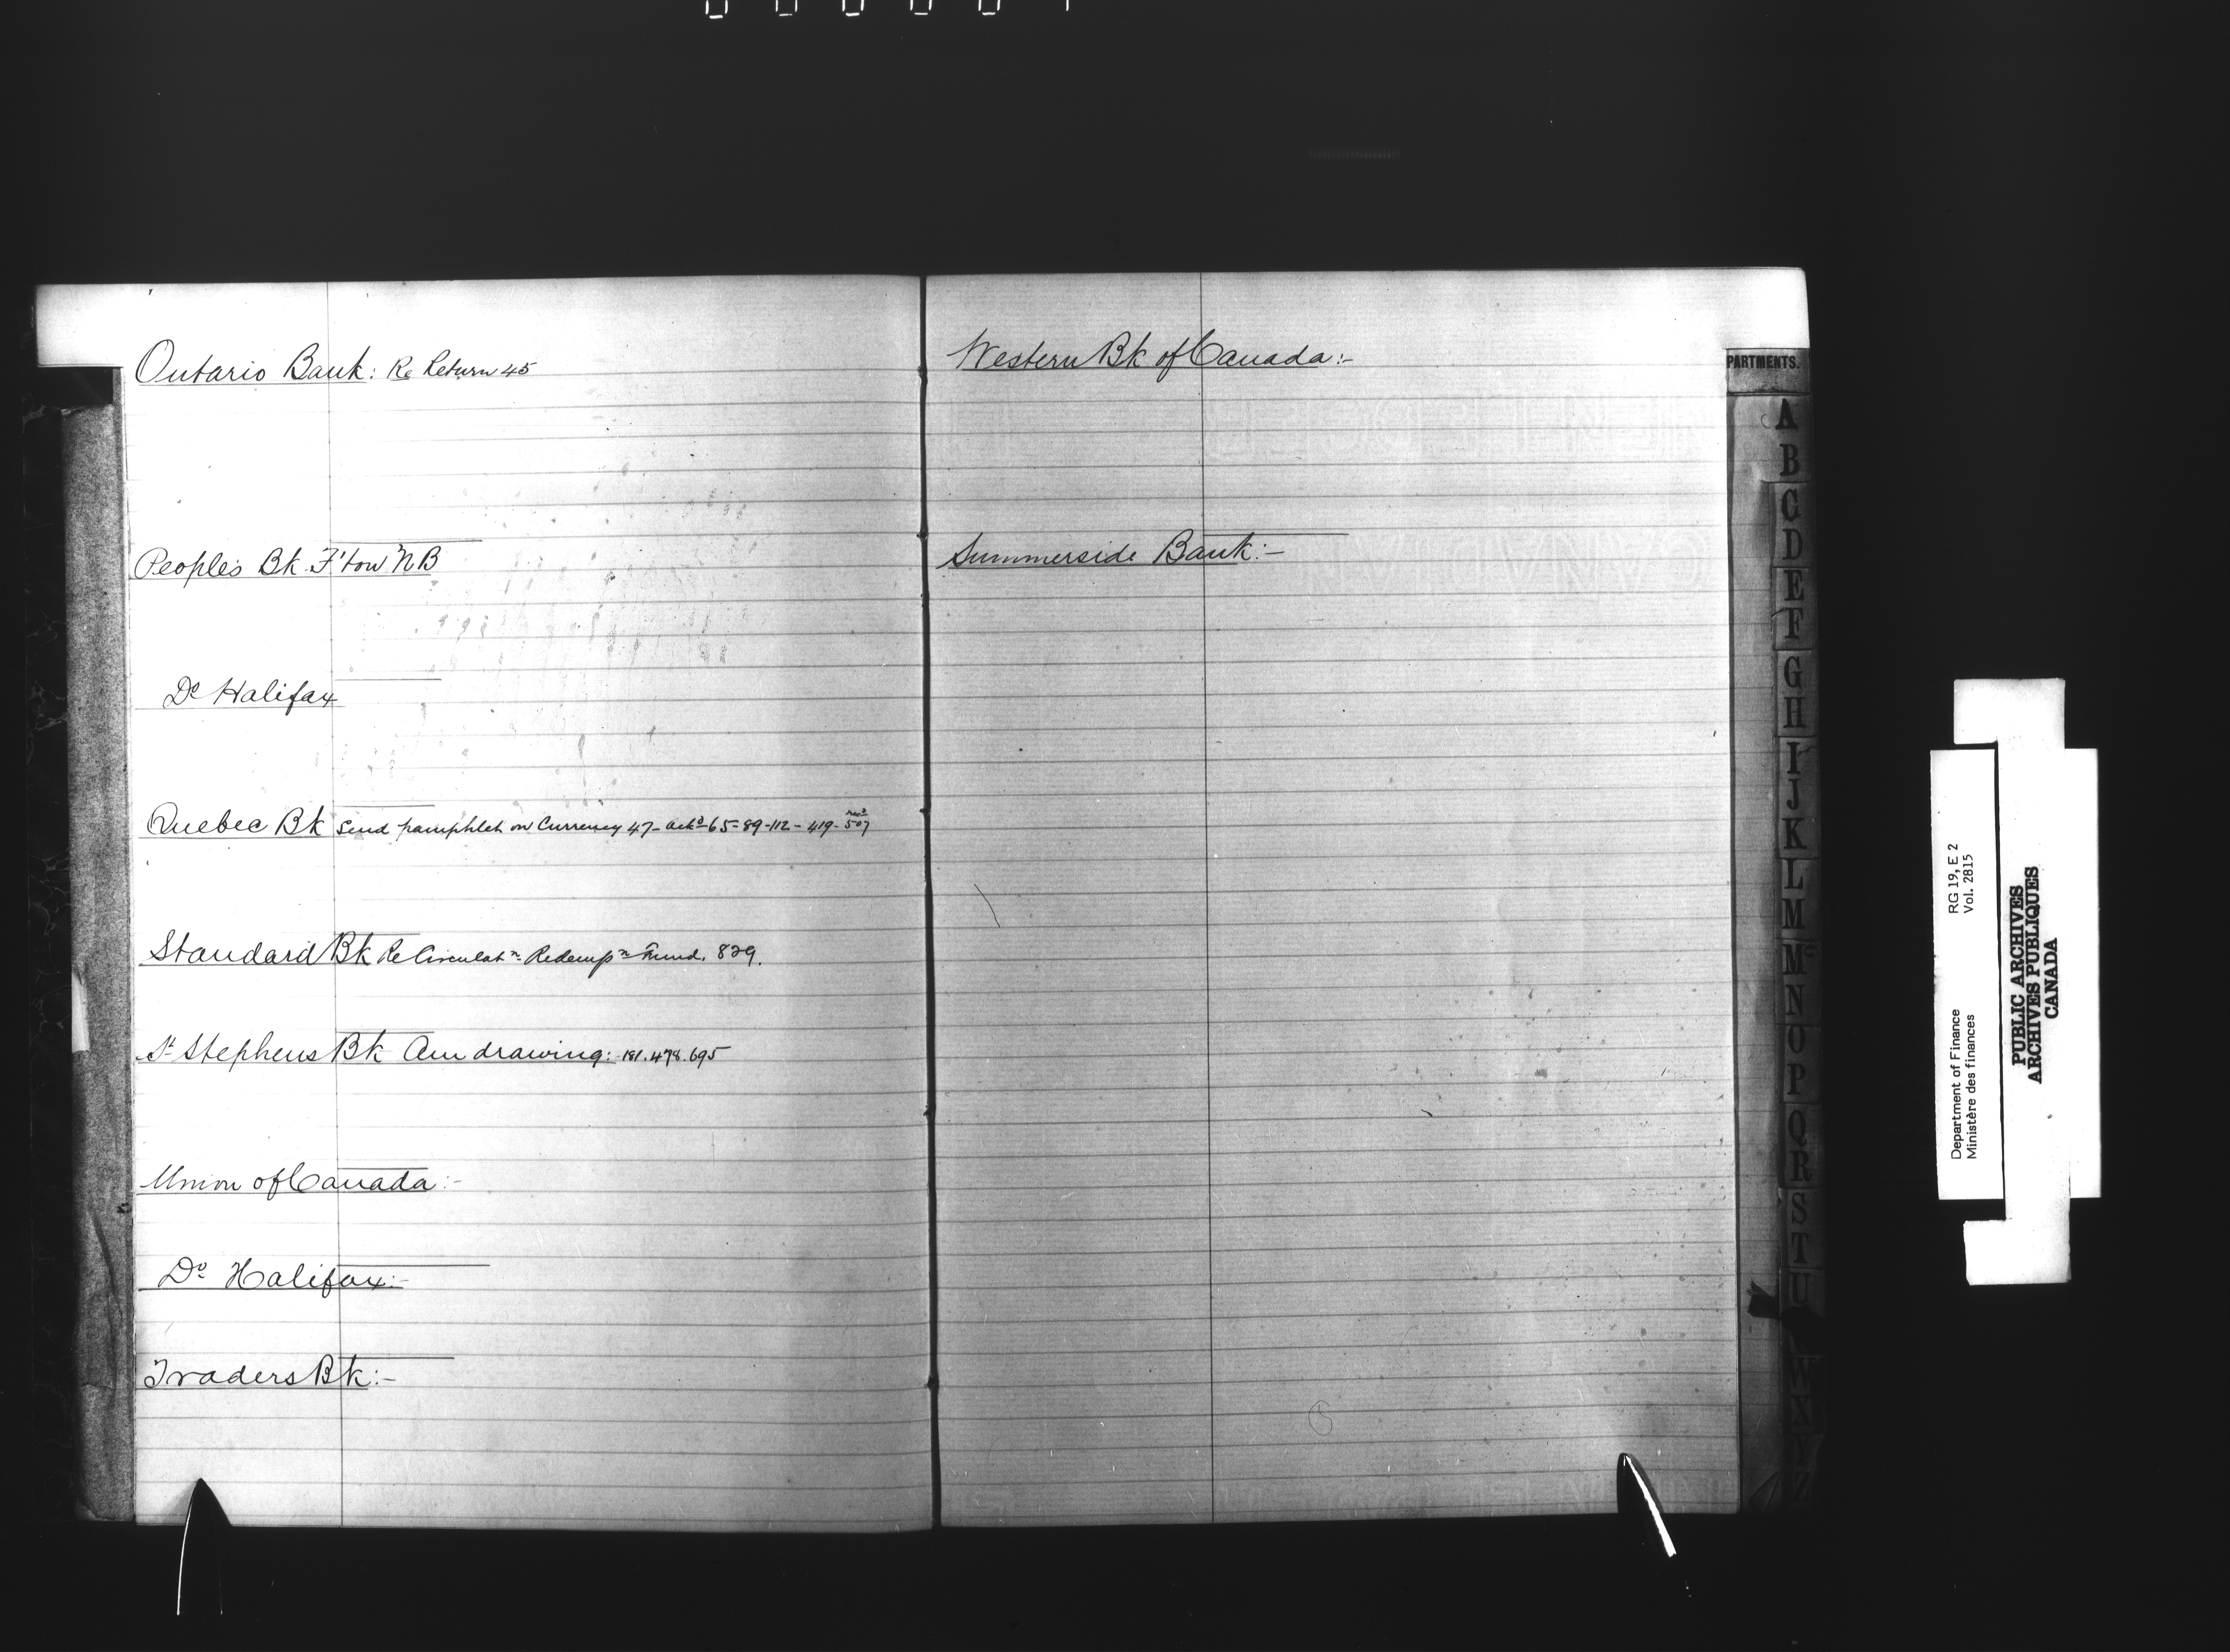 Ontario Bank: Re Return 45
Peoples Bk F'ton NB
Do Halifax
Quebec Bk Send pamphlet on Currency 47- ackd 65-89-112-419-507
Standard Bk Re Circulatn Redempn Fund. 829.
St Stephens Bk Am drawing: 181.478.695
Union of Canada:-
Do Halifax:-
Traders Bk:-
Western Bk of Canada:-
Summerside Bank:-
PARTMENTS.
A
B
C
D
E
F
G
H
I
J
K
L
M
Mc
N
O
P
Q
R
S
T
U
W
X
Y
Z
Department of Finance RG 19, E 2
Ministère des finances Vol. 2815
PUBLIC ARCHIVES
ARCHIVES PUBLIQUES
CANADA